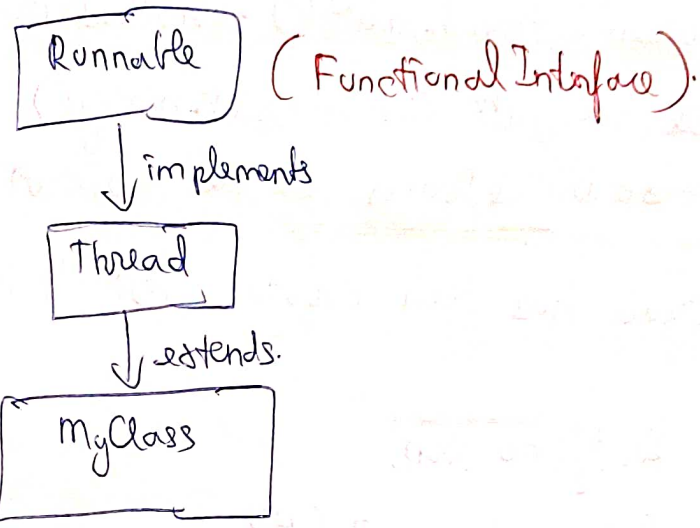 Runnable (Functional Interface).
implements
Thread
extends.
MyClass